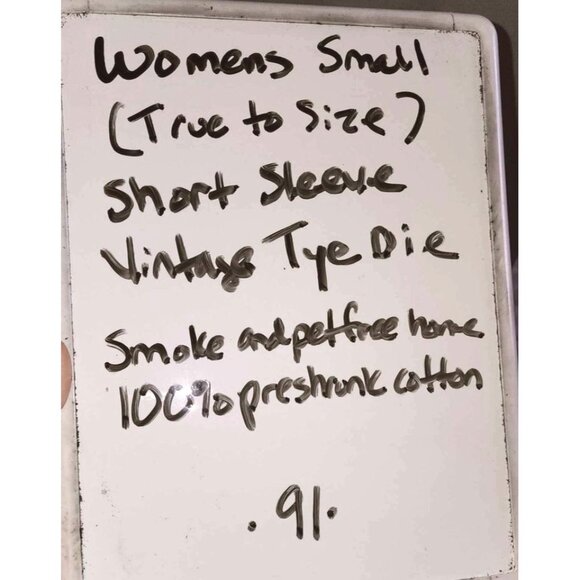 Womens Small
(True to Size)
Short Sleeve
Vintage Tye Die
Smoke and petfree home
100% preshrunk cotton
.91.